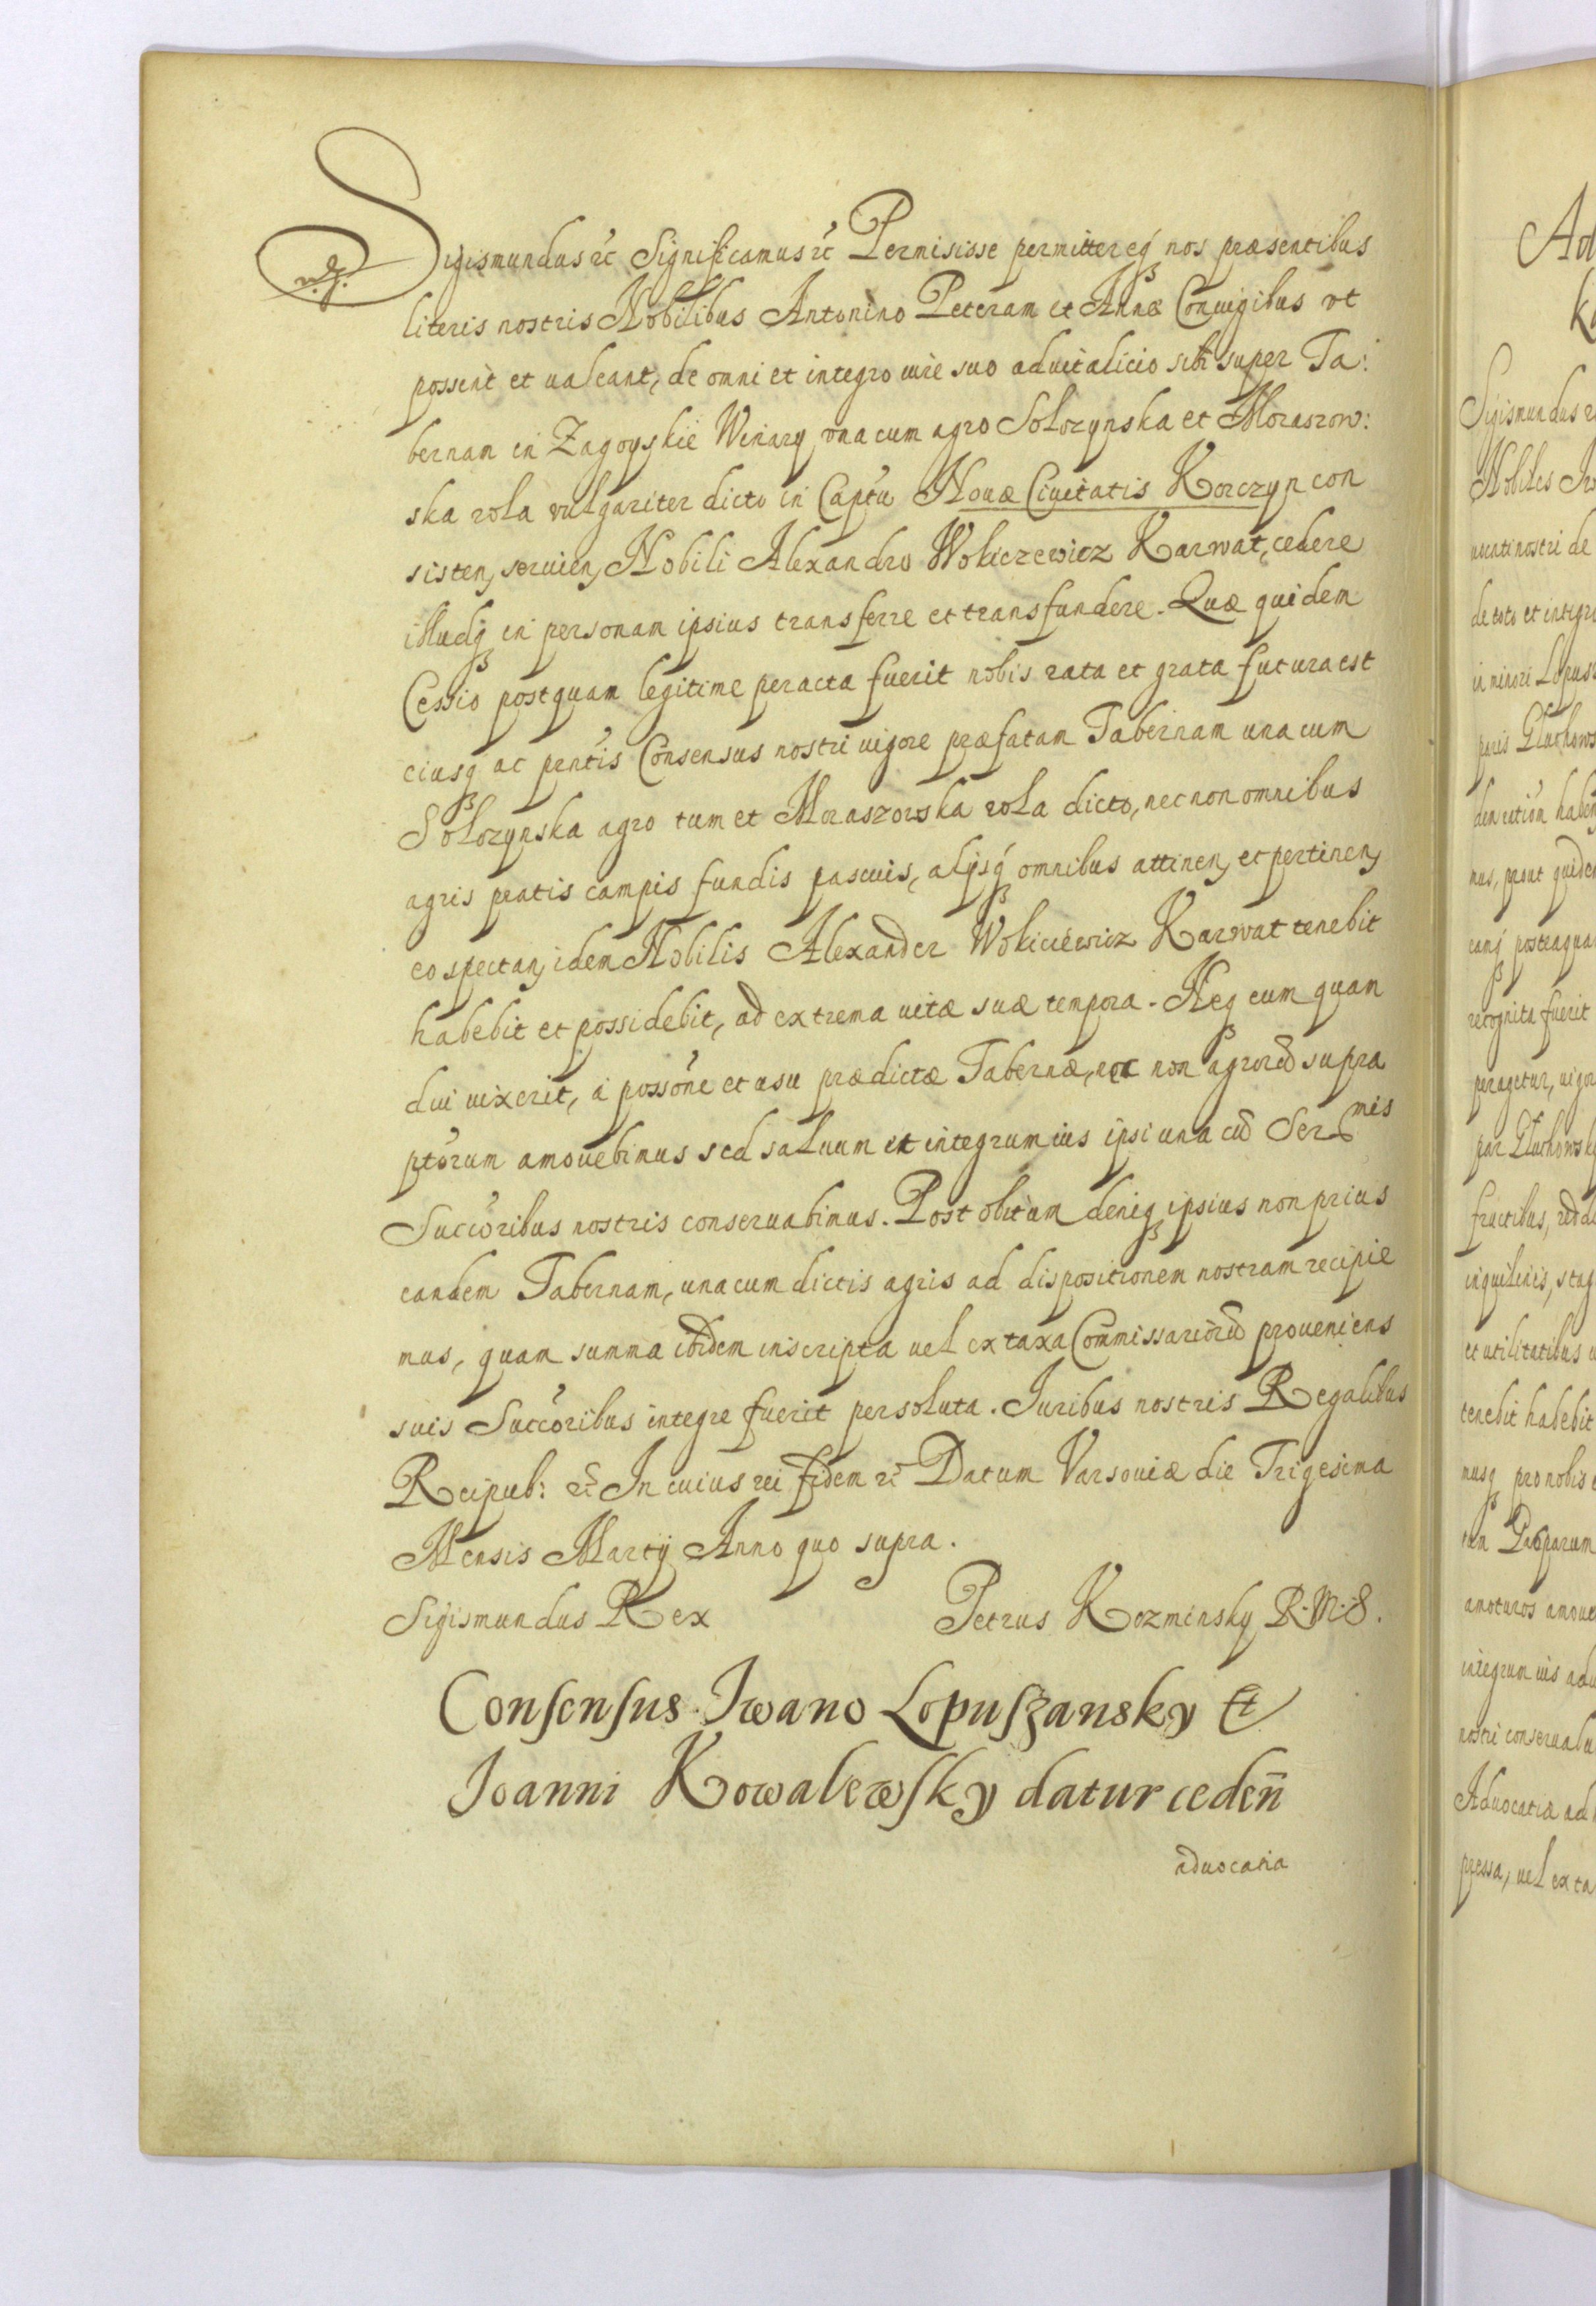 Sigismundus etc Significamus etc Permisisse permittereq nos præsentibus
literis nostris Nobilibus Antonino Peteram et Annæ Coniugibus vt
possent et ualeant, de omni et integro iure suo aduitalicio sibi super Ta:
bernam in Zagoyskie Winary vna cum agro Sołozynska et Moraszow:
ska rola vulgariter dicto in Captu Nouæ Ciuitatis Korczyn con
sisten, seruien, Nobili Alexandro Wokiczewicz Karwat, cedere
illudq in personam ipsius transferre et transfundere. Quæ quidem
Cessio postquam legitime peracta fuerit nobis rata et grata futura est
eiusq ac pentis Consensus nostri uigore præfatam Tabernam una cum
Sołozynska agro tum et Moraszowska rola dicto, necnon omnibus
agris pratis campis fundis pascuis, alijsq omnibus attinen, et pertinen,
eo spectan, idem Nobilis Alexander Wokiciewicz Karwat tenebit
habebit et possidebit, ad extrema uitæ suæ tempora. Neq eum quam
diu uixerit, à possone et usu prædictæ Tabernæ, nec non agrorū supra
ptorum amouebimus sed saluum et integrum ius ipsi una cū Ser mis
Succoribus nostris conseruabimus. Post obitum deniq ipsius non prius
eandem Tabernam, una cum dictis agris ad dispositionem nostram recipie
mus, quam summa ibidem inscripta uel ex taxa Commissariorū proueniens
suis Succoribus integre fuerit persoluta. Iuribus nostris Regalibus
Reipub: etc In cuius rei fidem etc Datum Varsouiæ die Trigesima
Mensis Martij Anno quo supra.
Sigismundus Rex Petrus Kozminsky R. M. S.
Consensus Iwano Lopuszansky Et
Ioanni Kowalewsky datur ceden̄
aduocatia
Sigismundus
Nobiles
nostri de
de toto et integro
in minori
recognita fuerit
peragetur,
fructibus,
inquilinis,
et utilitatibus
tenebit habebit
musq pro nobis
integrum ius
nostri
Aduocatia ad
pressa, uel ex ta